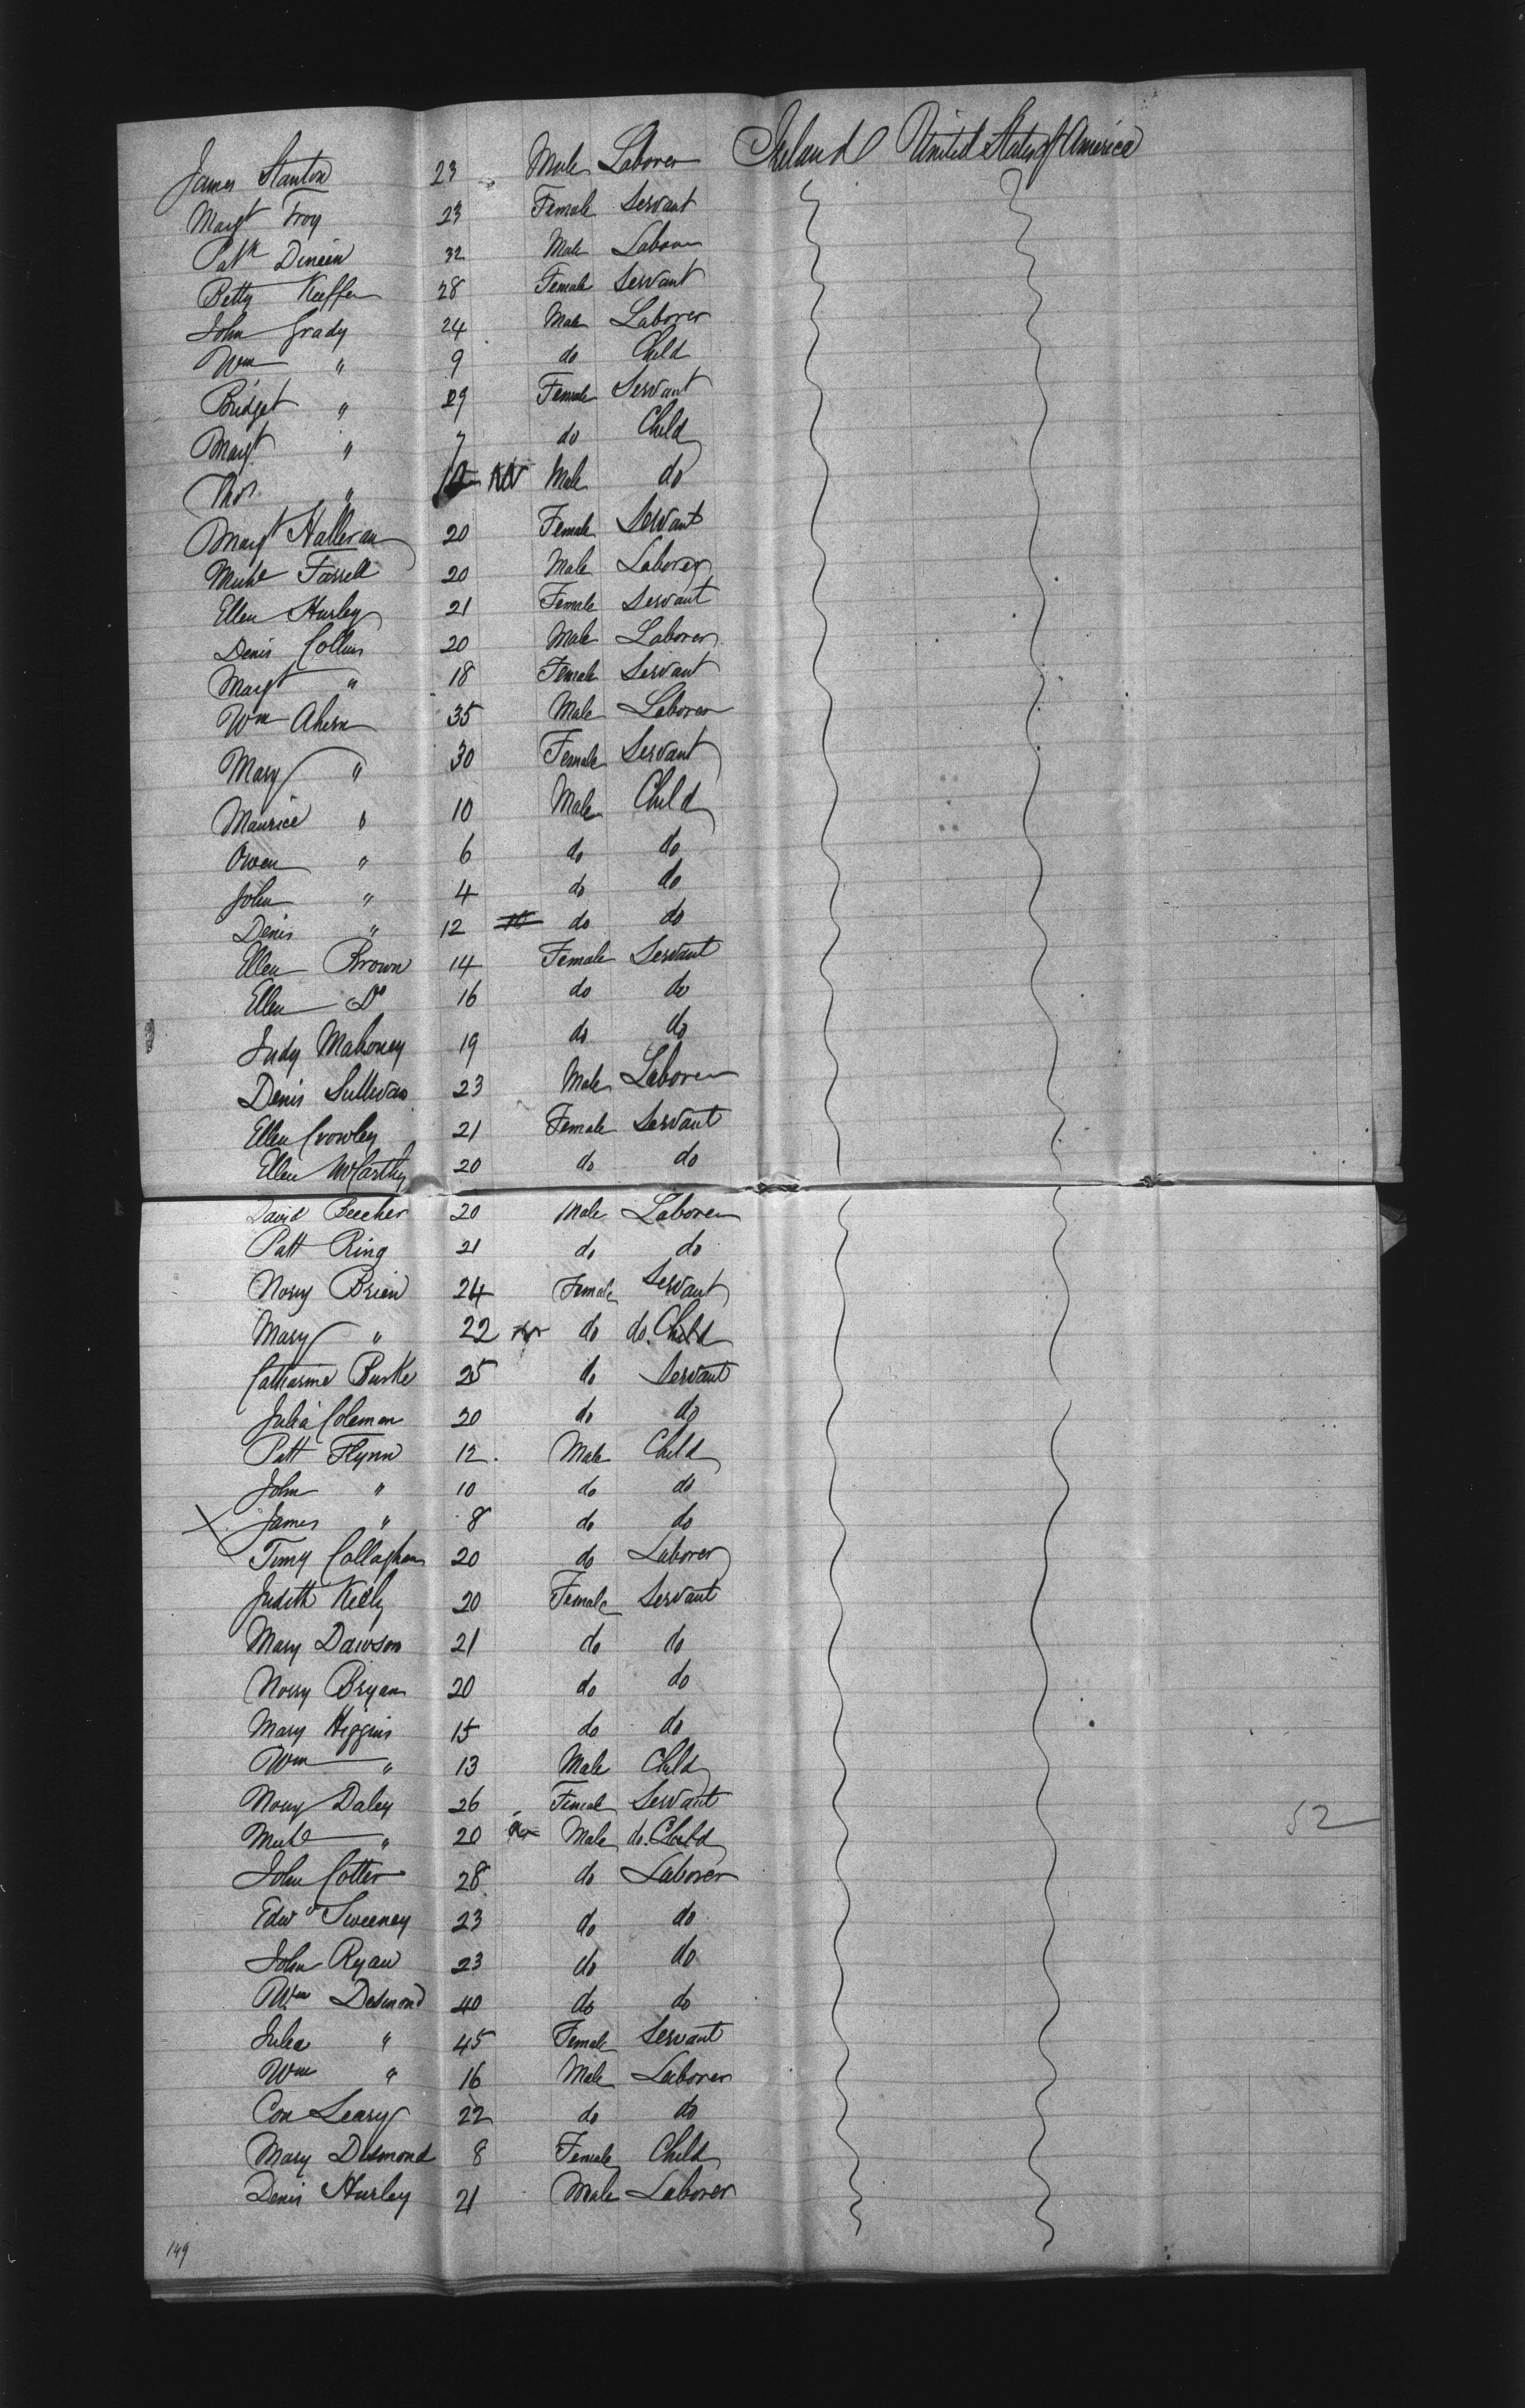 James Stanton 23 Male Laborer Ireland United States of America
Margt Troy 23 Female Servant
Patk Dineen 32 Male Laborer
Betty Keeffe 28 Female Servant
John Grady 24 Male Laborer
Wm " 9 do Child
Bridget " 29 Female Servant
Margt " 7 do Child
Thos " Male do
Margt Halleran 20 Female Servant
Michl Farrell 20 Male Laborer
Ellen Hurley 21 Female Servant
Denis Collins 20 Male Laborer
Margt " 18 Female Servant
Wm Ahern 35 Male Laborer
Mary " 30 Female Servant
Maurice " 10 Male Child
Owen " 6 do do
John " 4 do do
Denis " 12 do do
Ellen Brown 14 Female Servant
Ellen Do 16 do do
Judy Mahoney 19 do do
Denis Sullivan 23 Male Laborer
Ellen Crowley 21 Female Servant
Ellen McCarthy 20 do do
David Beecher 20 Male Laborer
Patt Ring 21 do do
Nory Brien 24 Female Servant
Mary " 22 do do. Child
Catharine Burke 25 do Servant
Julia Coleman 20 do do
Patt Flynn 12 Male Child
John " 10 do do
X James " 8 do do
Timy Callaghan 20 do Laborer
Judith Kelly 20 Female Servant
Mary Dawson 21 do do
Norry Bryan 20 do do
Mary Higgins 15 do do
Wm " 13 Male Child
Nory Daley 26 Female Servant
Michl " 20 Male do. Child 52
John Cotter 28 do Laborer
Edwd Sweeney 23 do do
John Ryan 23 do do
Wm Desmond 40 do do
Julia " 45 Female Servant
Wm " 16 Male Laborer
Con Leary 22 do do
Mary Desmond 8 Female Child
Denis Hurley 21 Male Laborer
149